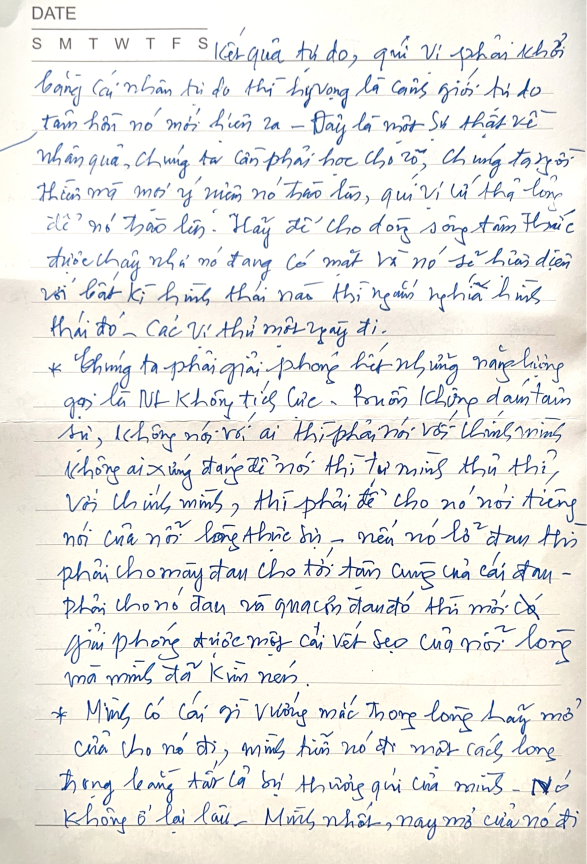 DATE
S M T W T F S
Kết quả tự do, quí vị phải khởi
bằng cá nhân tự do thì hy vọng là cảnh giới tự do
tâm hồn nó mới hiện ra – Đây là một sự thật về
nhân quả, chúng ta cần phải học cho rõ, chúng ta ngồi
thiền mà mọi ý niệm nó trào lên, quí vị cứ thả lỏng
để nó trào lên. Hãy để cho dòng sông tâm thức
được chảy như nó đang có mặt và nó sẽ hiện diện
với bất kì hình thái nào thì ngắm nghía hình
thái đó – Các vị thử một ngày đi.
* Chúng ta phải giải phóng hết những năng lượng
gọi là NL không tích cực. Buồn không dám tâm
sự, không nói với ai thì phải nói với chính mình
không ai xứng đáng để nói thì tự mình thủ thỉ,
với chính mình, thì phải để cho nó nói tiếng
nói của nỗi lòng thực sự – nếu nó lỡ đau thì
phải cho mày đau cho tới tận cùng của cái đau –
phải cho nó đau và qua cơn đau đó thì mới có
giải phóng được một cái vết sẹo của nỗi lòng
mà mình đã kìm nén.
* Mình có cái gì vướng mắc trong lòng hãy mở
cửa cho nó đi, mình tiễn nó đi một cách long
trọng bằng tất cả sự thương quí của mình – Nó
không ở lại lâu – Mình nhốt, nay mở cửa nó đi